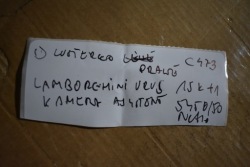 1) LUSTERKO PRAWE C473
LAMBORGHINI URUS 15K+1
KAMERA ASYSTENT 5450/50